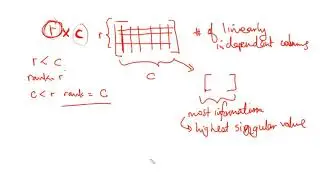 r x c
r
c
# of linearly
independent columns
r < c
rank = r
c < r rank = c
most information
highest singular value